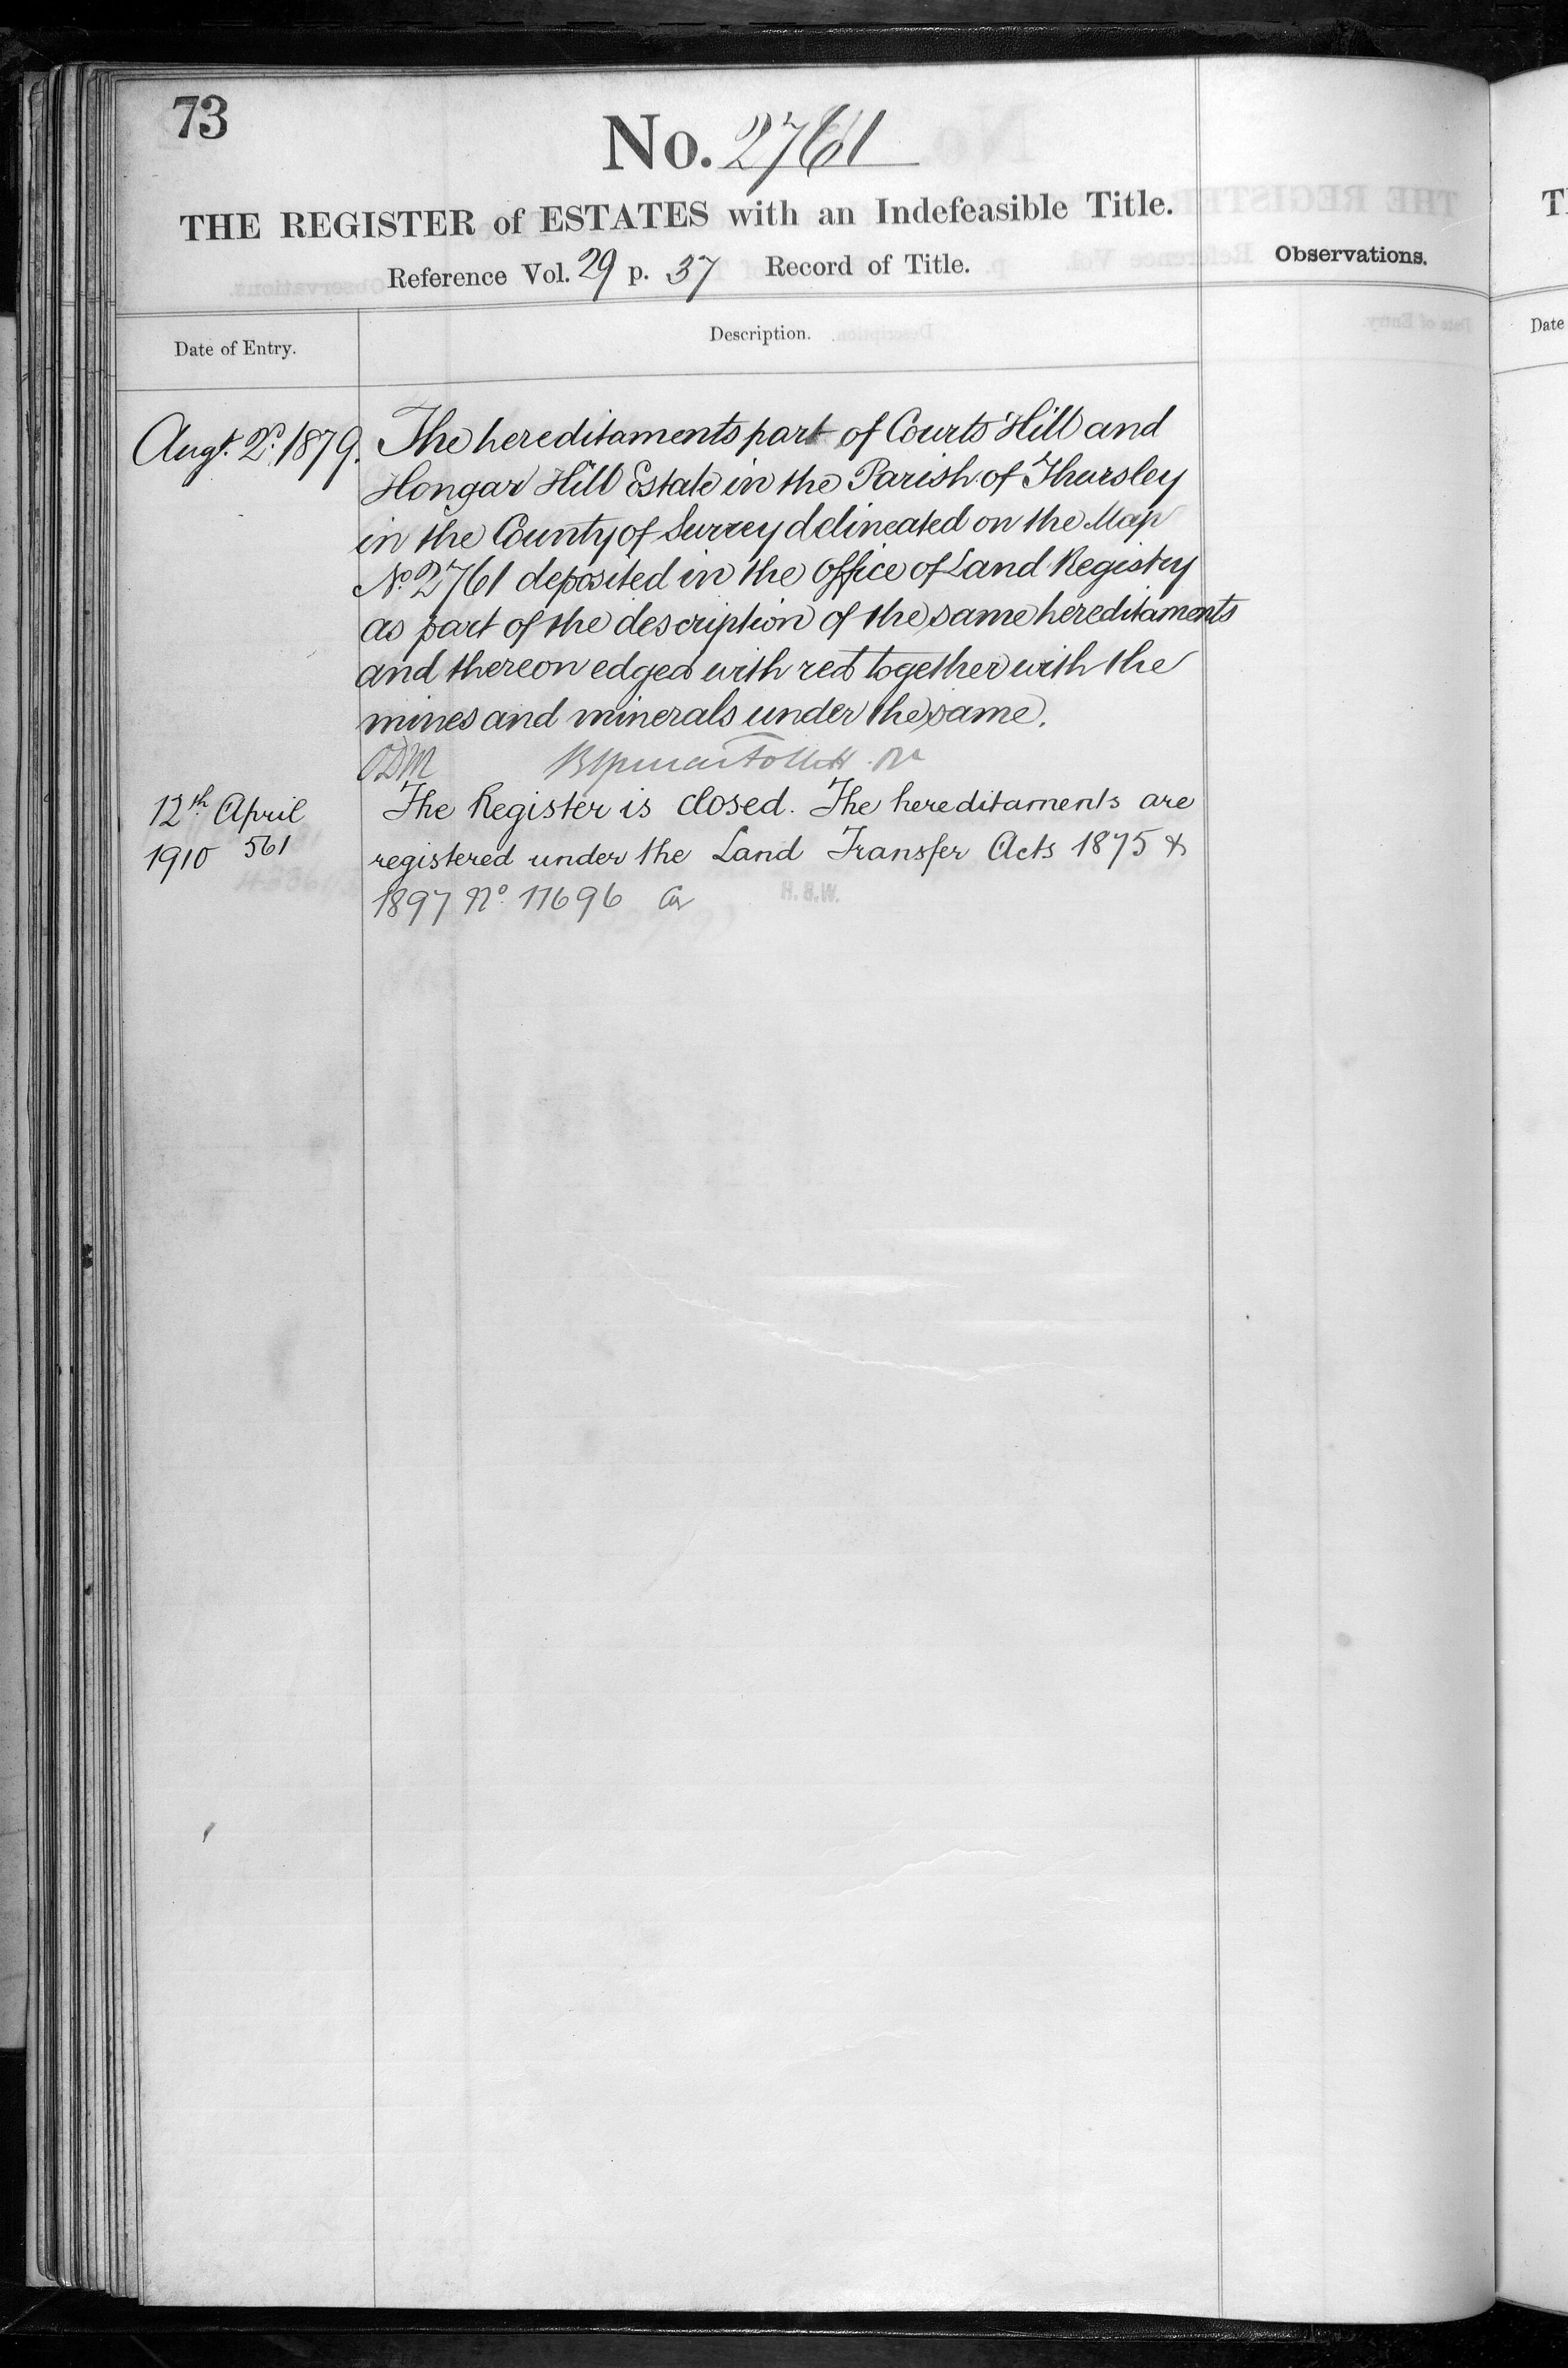 73
No. 2761
THE REGISTER of ESTATES with an Indefeasible Title.
Reference Vol. 29 p. 37 Record of Title.
Observations.
Date of Entry.
Description.
Augt. 2d. 1879. The hereditaments part of Courts Hill and
Hongar Hill Estate in the Parish of Thursley
in the County of Surrey delineated on the Map
No. 2761 deposited in the Office of Land Registry
as part of the description of the same hereditaments
and thereon edged with red together with the
mines and minerals under the same.
ODM
12th April The Register is closed. The hereditaments are
1910 561 registered under the Land Transfer Acts 1875 &
1897 No. 11696
H.S.W.
Date